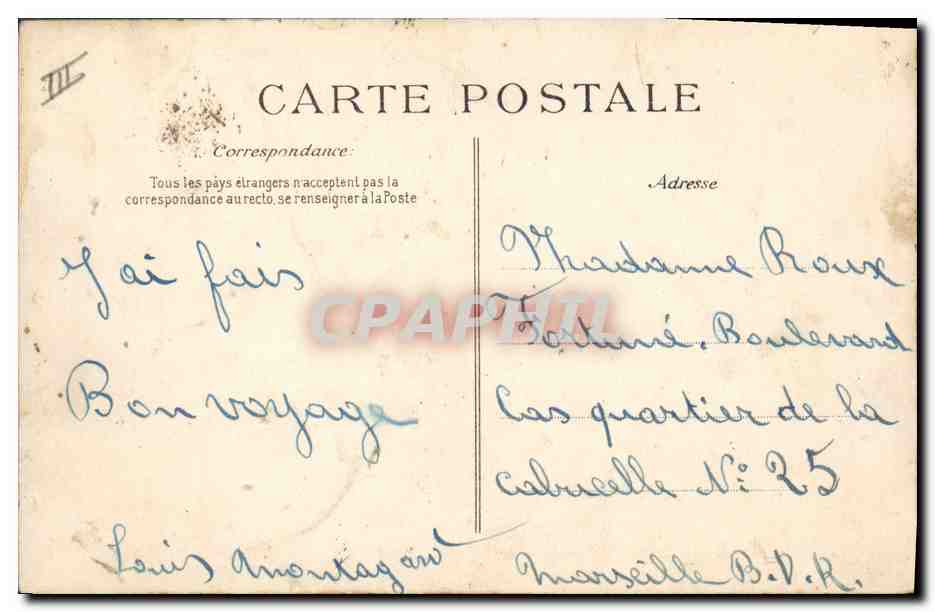 III
CARTE POSTALE
Correspondance:
Tous les pays étrangers n'acceptent pas la
correspondance au recto, se renseigner à la Poste
J'ai fais
Bon voyage
Louis Montagard
Adresse
Madame Roux
Fortuné. Boulevard
Cas quartier de la
cabucelle No: 25
Marseille B.d.R.
CPAPHIL